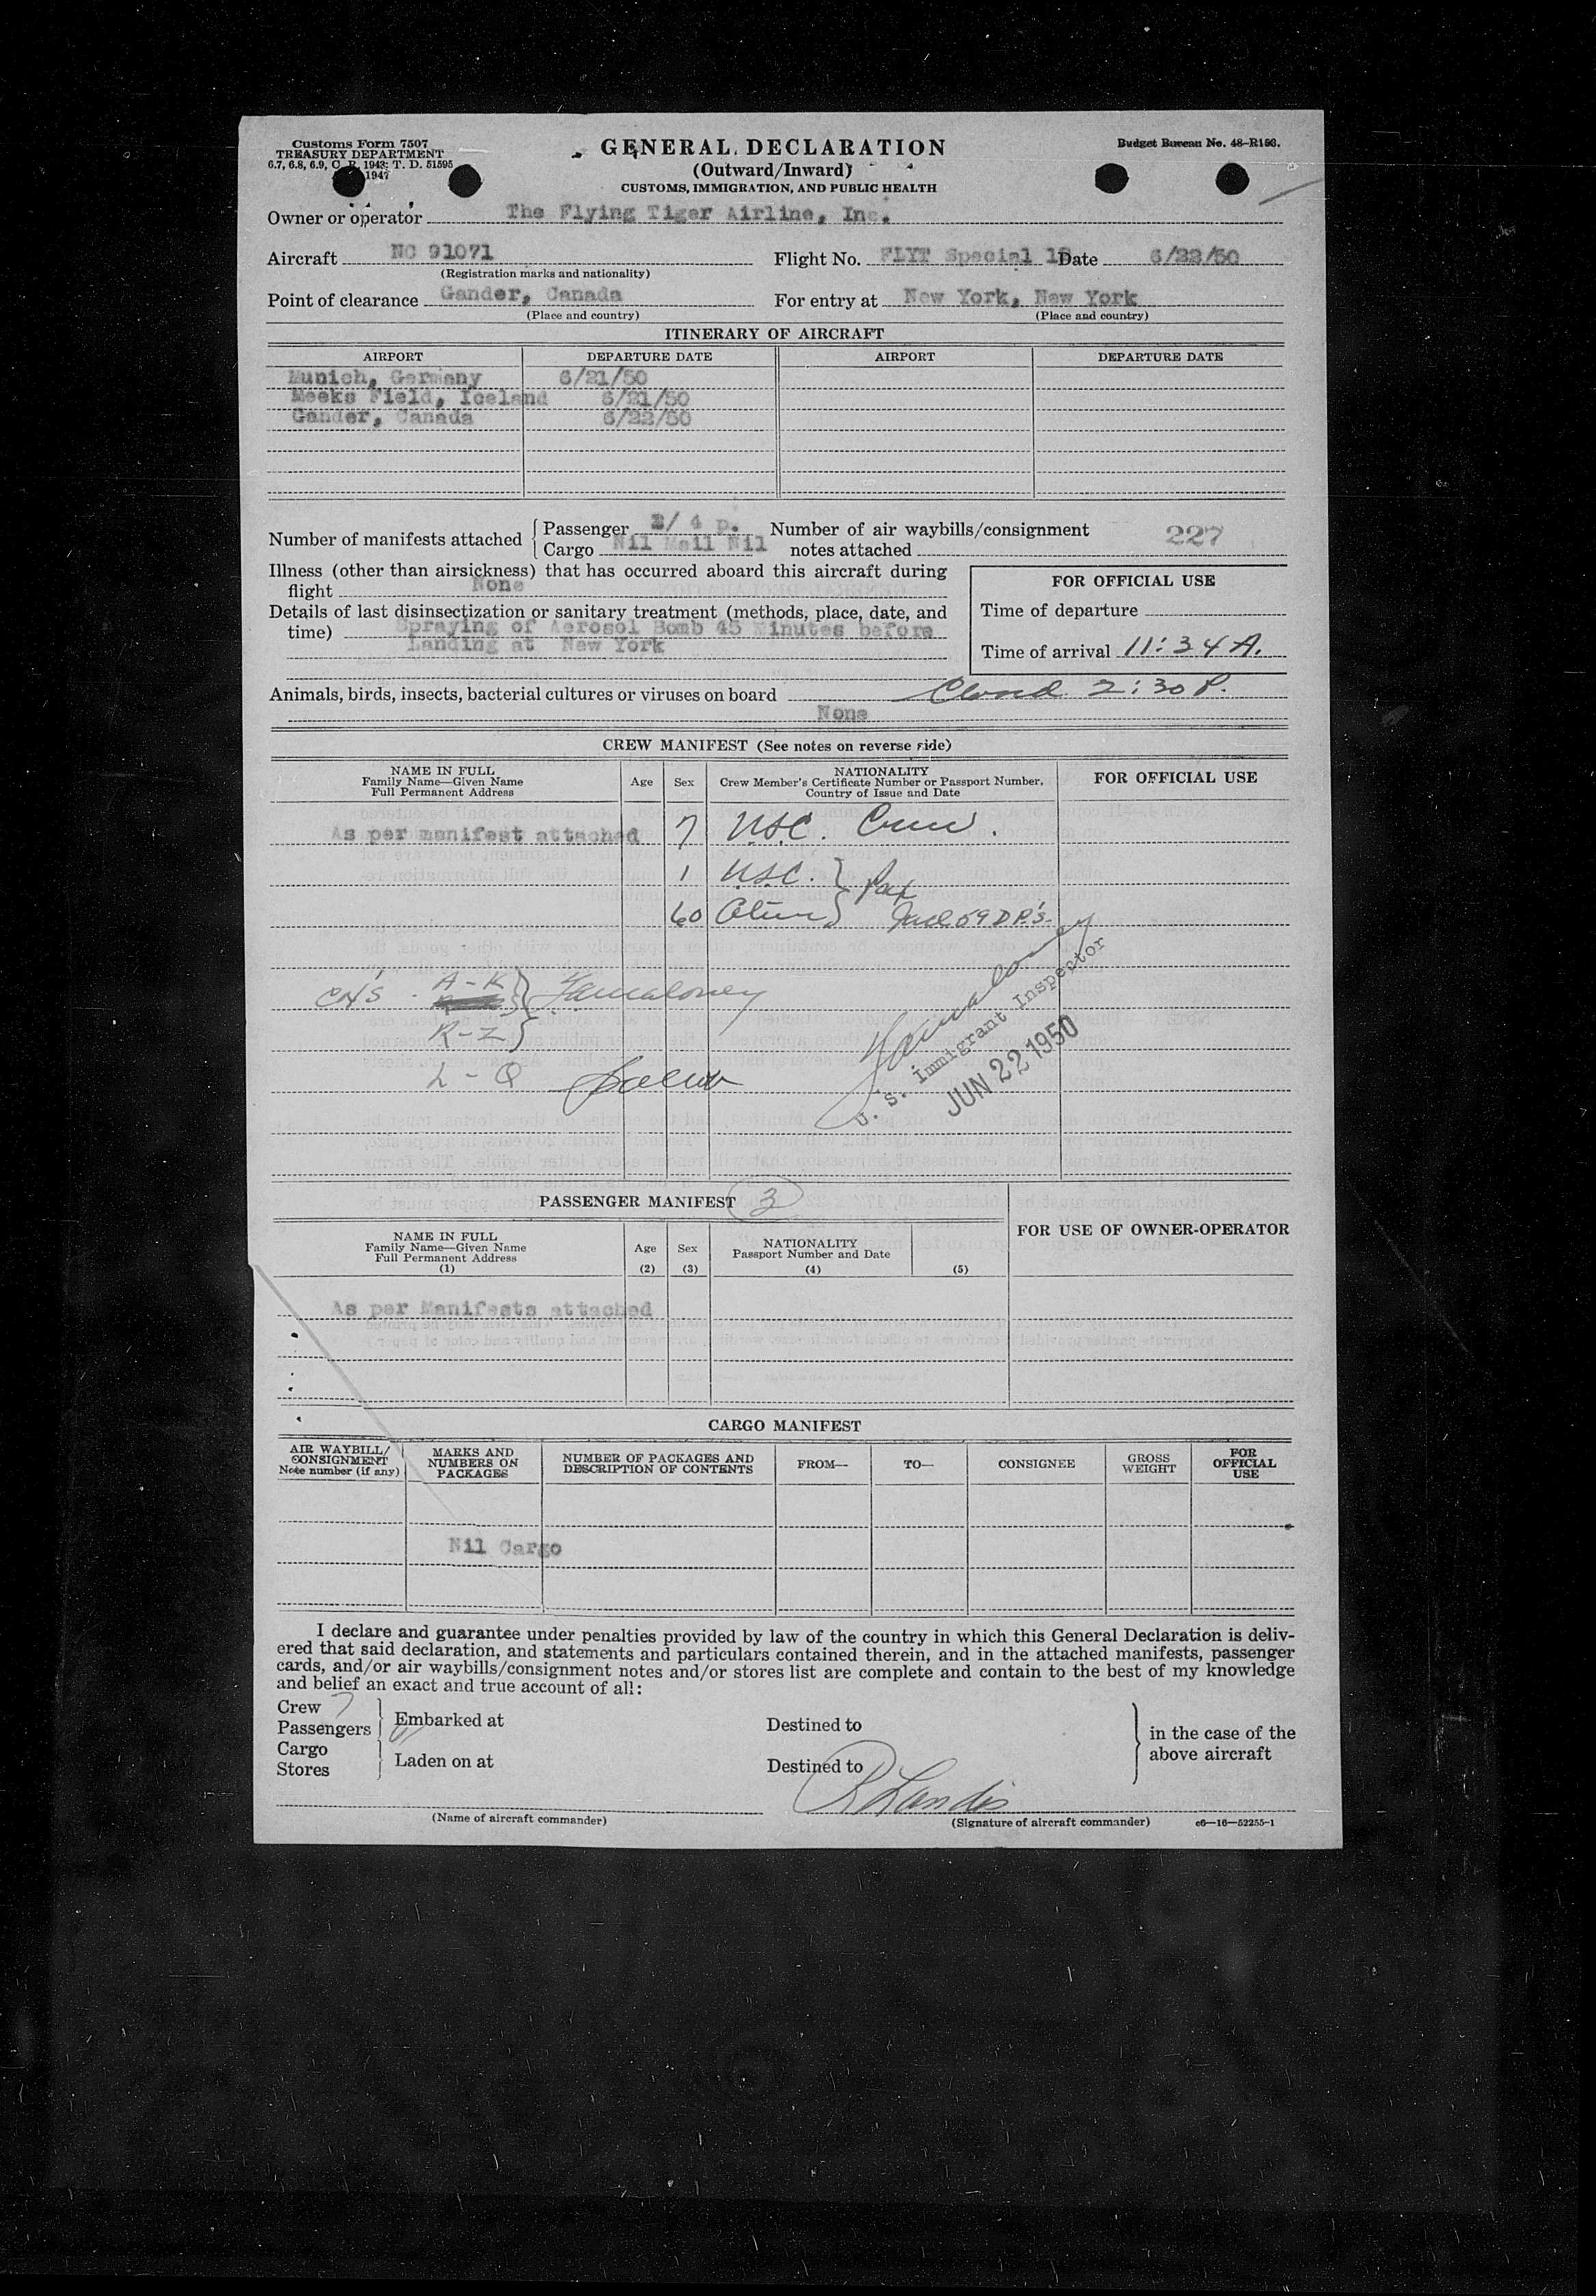 Customs Form 7507
TREASURY DEPARTMENT
6.7, 6.8, 6.9, C. R. 1943; T. D. 51595
1947
GENERAL DECLARATION
(Outward/Inward)
CUSTOMS, IMMIGRATION, AND PUBLIC HEALTH
Budget Bureau No. 48-R150.
Owner or operator The Flying Tiger Airline, Inc.
Aircraft NC 91071 Flight No. FLYT Special 18 Date 6/22/50
(Registration marks and nationality)
Point of clearance Gander, Canada For entry at New York, New York
(Place and country) (Place and country)
ITINERARY OF AIRCRAFT
AIRPORT DEPARTURE DATE AIRPORT DEPARTURE DATE
Munich, Germany 6/21/50
Meeks Field, Iceland 6/21/50
Gander, Canada 6/22/50
Number of manifests attached { Passenger 2/ 4 p. Number of air waybills/consignment 227
Cargo Nil Mail Nil notes attached
Illness (other than airsickness) that has occurred aboard this aircraft during
flight None
Details of last disinsectization or sanitary treatment (methods, place, date, and
time) Spraying of Aerosol Bomb 45 Minutes before
Landing at New York
FOR OFFICIAL USE
Time of departure
Time of arrival 11:34 A.
Animals, birds, insects, bacterial cultures or viruses on board 2:30 P.
None
CREW MANIFEST (See notes on reverse side)
NAME IN FULL
Family Name—Given Name
Full Permanent Address
Age Sex
NATIONALITY
Crew Member's Certificate Number or Passport Number,
Country of Issue and Date
FOR OFFICIAL USE
As per manifest attached 7 USC. Crew.
1 U.S.C. } Pax
60 Alien } Incl 59 DP's.
A-K
R-Z
L-Q
U. S. Immigrant Inspector
JUN 22 1950
PASSENGER MANIFEST 3
NAME IN FULL
Family Name—Given Name
Full Permanent Address
(1)
Age
(2)
Sex
(3)
NATIONALITY
Passport Number and Date
(4)
(5)
FOR USE OF OWNER-OPERATOR
As per Manifests attached
CARGO MANIFEST
AIR WAYBILL/
CONSIGNMENT
Note number (if any)
MARKS AND
NUMBERS ON
PACKAGES
NUMBER OF PACKAGES AND
DESCRIPTION OF CONTENTS
FROM—
TO—
CONSIGNEE
GROSS
WEIGHT
FOR
OFFICIAL
USE
Nil Cargo
I declare and guarantee under penalties provided by law of the country in which this General Declaration is deliv-
ered that said declaration, and statements and particulars contained therein, and in the attached manifests, passenger
cards, and/or air waybills/consignment notes and/or stores list are complete and contain to the best of my knowledge
and belief an exact and true account of all:
Crew 7
Passengers 61
Cargo
Stores
Embarked at Destined to
Laden on at Destined to
in the case of the
above aircraft
R Landis
(Name of aircraft commander) (Signature of aircraft commander) c6—16—52255-1